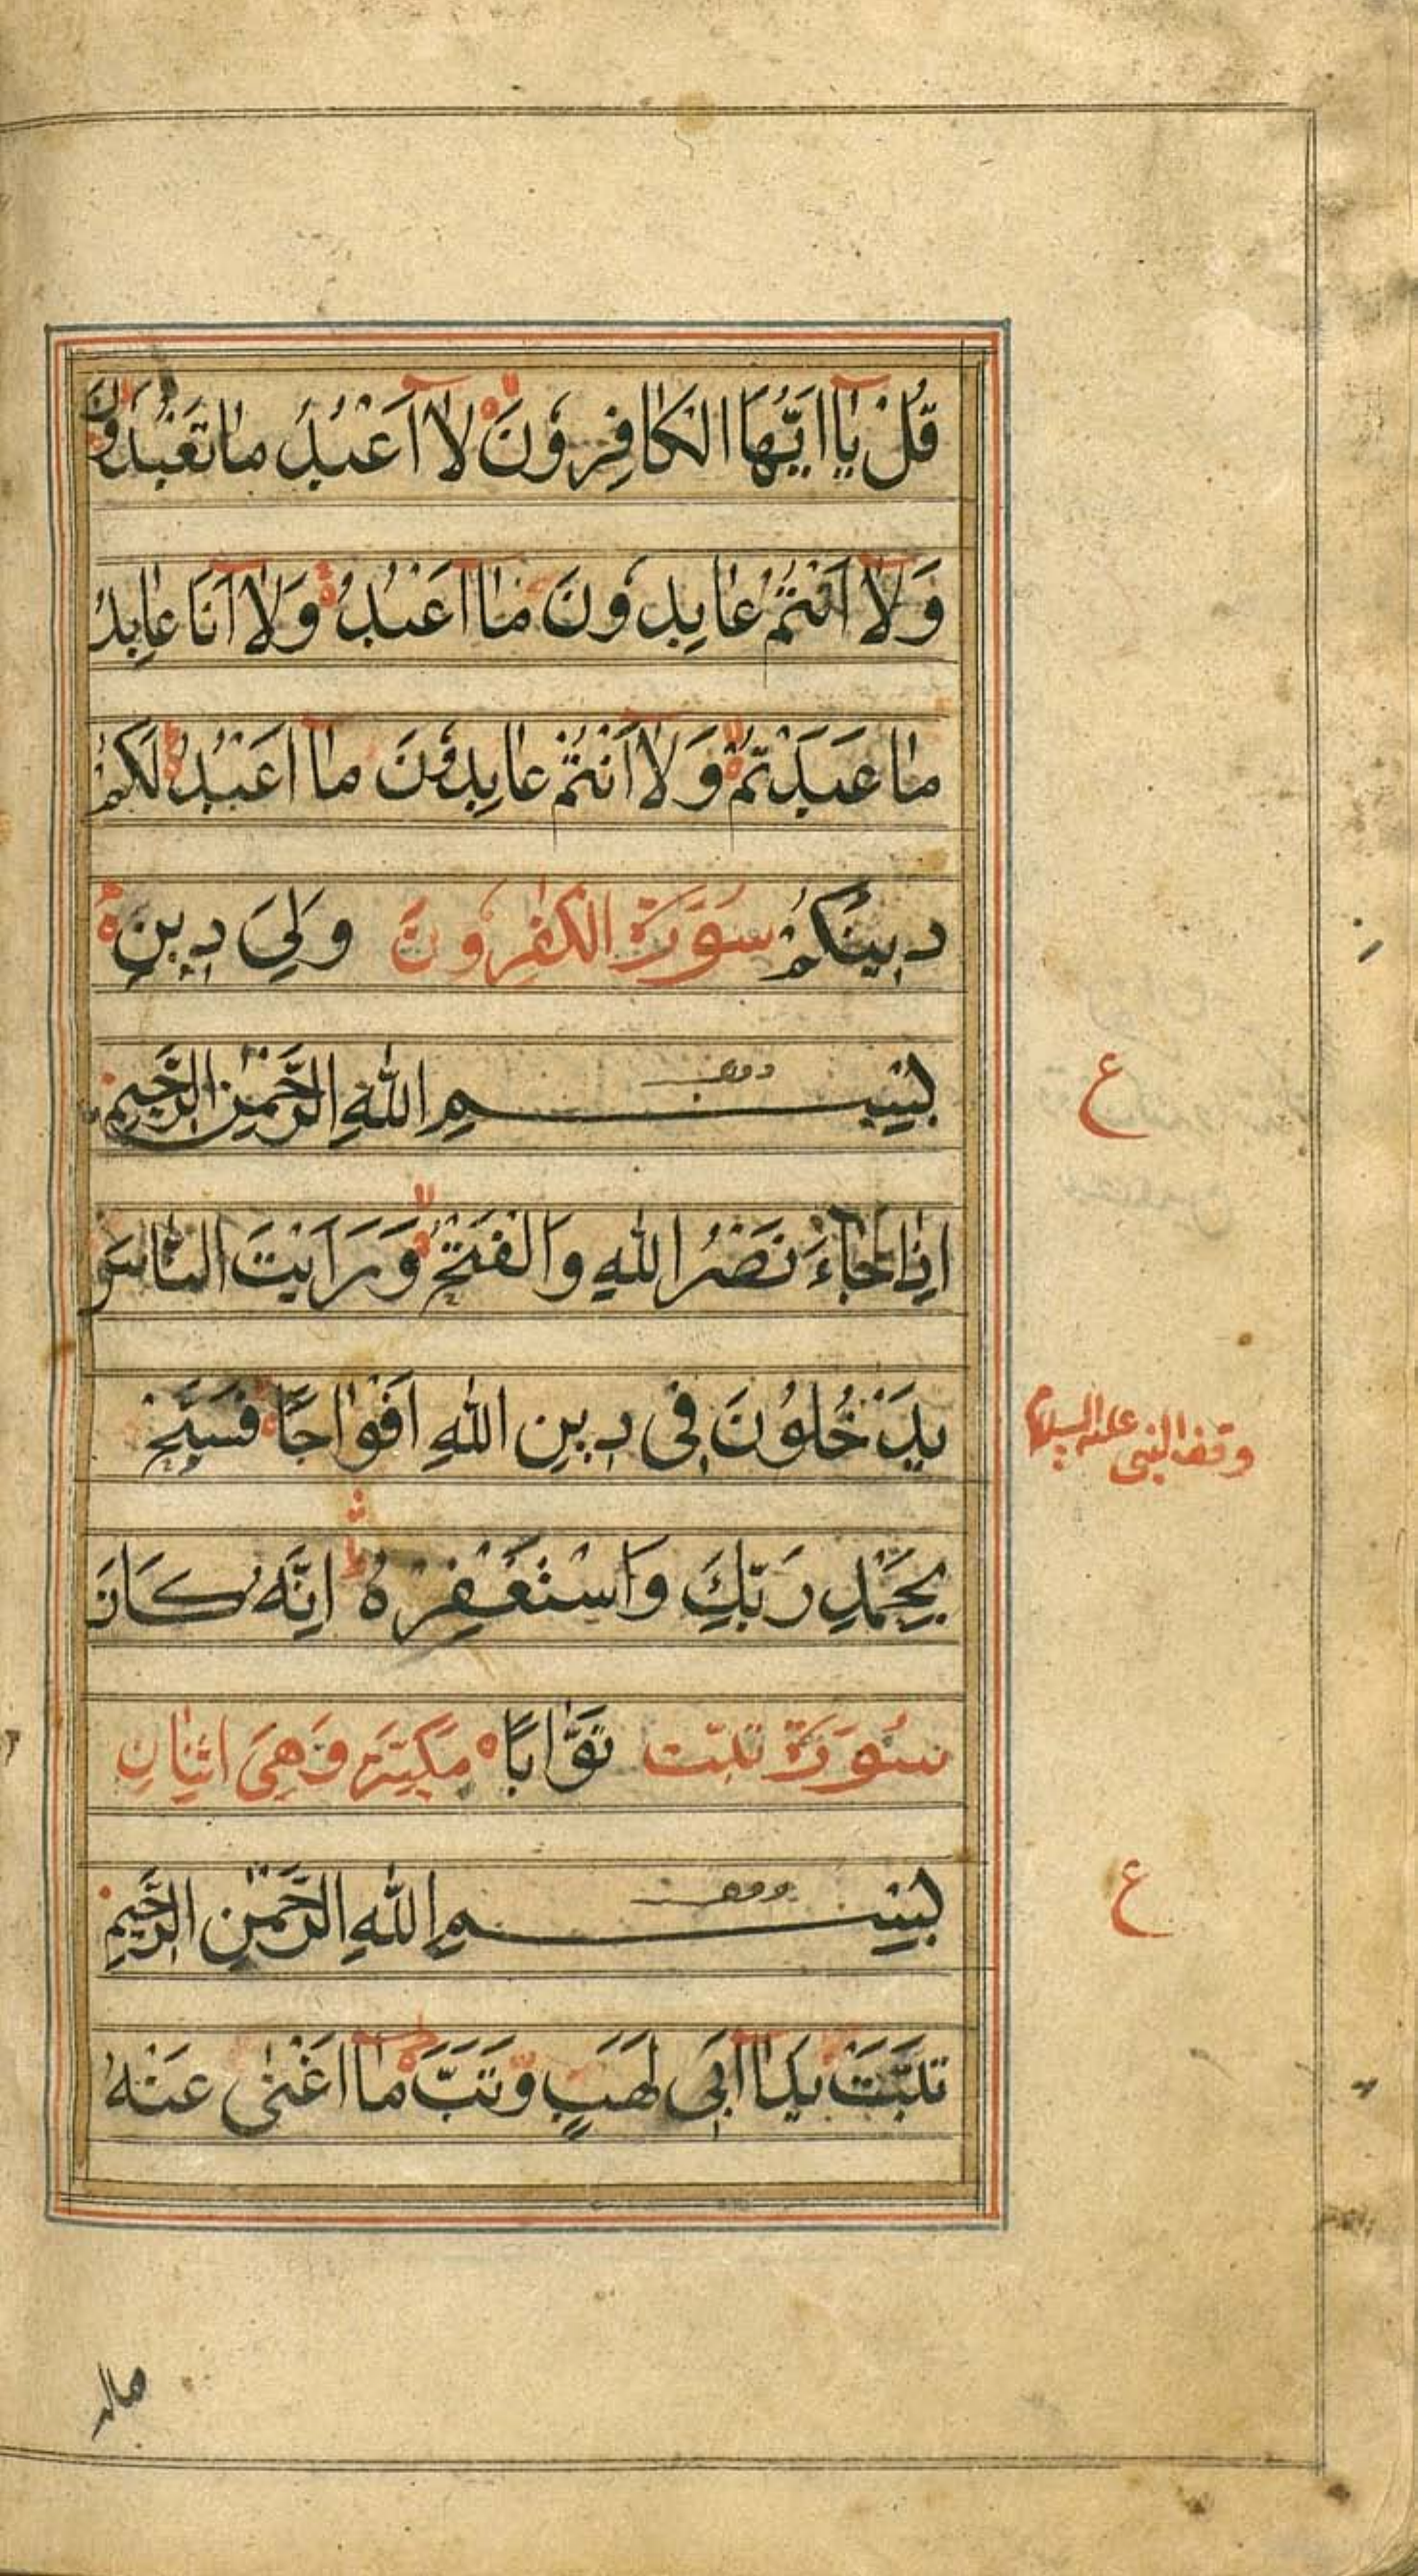 قُلْ يَا اَيُّهَا الْكَافِرُونَ لَا اَعْبُدُ مَا تَعْبُدُونَ
وَلَا اَنْتُمْ عَابِدُونَ مَا اَعْبُدُ وَلَا اَنَا عَابِدٌ
مَا عَبَدْتُمْ وَلَا اَنْتُمْ عَابِدُونَ مَا اَعْبُدُ لَكُمْ
دِينُكُمْ سُورَةُ الْكٰفِرُونَ وَلِيَ دِينِ
بِسْمِ اللّٰهِ الرَّحْمٰنِ الرَّحِيمِ
ع
اِذَا جَاءَ نَصْرُ اللّٰهِ وَالْفَتْحُ وَرَاَيْتَ النَّاسَ
يَدْخُلُونَ فِى دِينِ اللّٰهِ اَفْوَاجًا فَسَبِّحْ
وقف النبى عليه السلام
بِحَمْدِ رَبِّكَ وَاسْتَغْفِرْهُ اِنَّهُ كَانَ
سُورَةُ تبّت تَوَّابًا مَكِّيَّة وَهِىَ اثنان
بِسْمِ اللّٰهِ الرَّحْمٰنِ الرَّحِيمِ
ع
تَبَّتْ يَدَا اَبِى لَهَبٍ وَتَبَّ مَا اَغْنٰى عَنْهُ
ماله